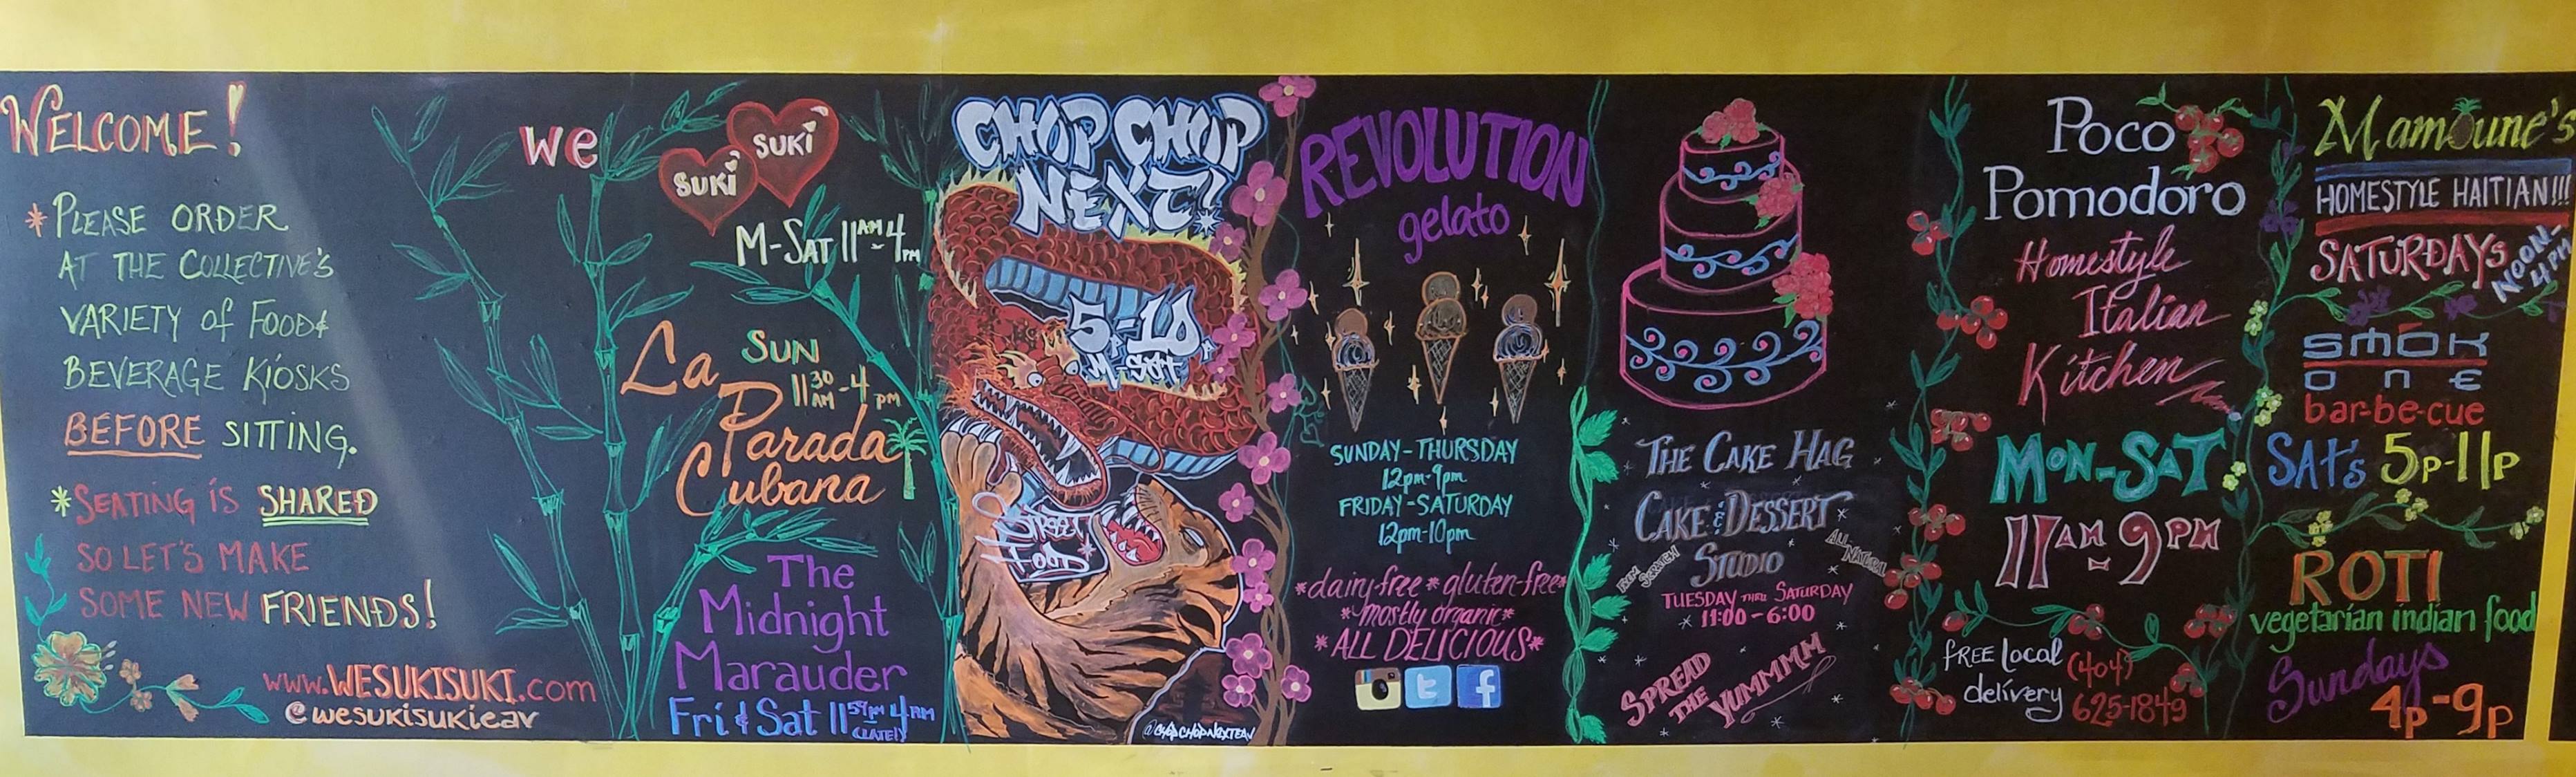 WELCOME!
*PLEASE ORDER
AT THE COLLECTIVE'S
VARIETY of FOOD &
BEVERAGE KIOSKS
BEFORE SITTING.
*SEATING IS SHARED
SO LET'S MAKE
SOME NEW FRIENDS!
www.WESUKISUKI.com
@wesukisukieav
We
SUKI
SUKI
M-SAT 11AM-4PM
La
Parada
Cubana
SUN
11 30 AM-4 PM
The
Midnight
Marauder
Fri & Sat 11 59PM 4AM
(LATE!)
CHOP CHOP
NEXT!
5P-10P
M-SAT
STREET
FOOD
@CHOPCHOPNEXTEAV
REVOLUTION
gelato
SUNDAY-THURSDAY
12pm-9pm
FRIDAY-SATURDAY
12pm-10pm
*dairy-free * gluten-free*
*mostly organic*
*ALL DELICIOUS*
THE CAKE HAG
CAKE & DESSERT
STUDIO
FROM SCRATCH
ALL NATURAL
TUESDAY THRU SATURDAY
11:00-6:00
SPREAD
THE YUMMMM
Poco
Pomodoro
Homestyle
Italian
Kitchen
MON-SAT
11AM-9PM
FREE Local
delivery
(404)
625-1849
Mamoune's
HOMESTYLE HAITIAN!!!
SATURDAYS
NOON-
4PM
SMOK
ONE
bar-be-cue
SAT's 5p-11p
ROTI
vegetarian indian food
Sundays
4p-9p